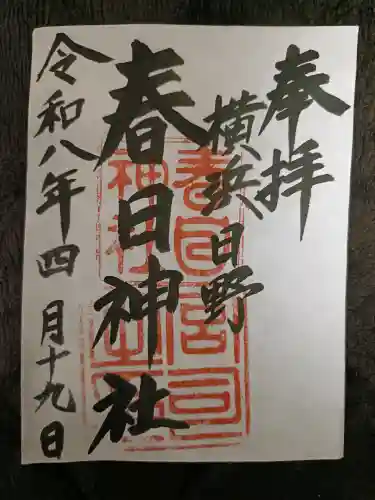 奉拝
横浜、日野
春日神社
令和八年四月十九日